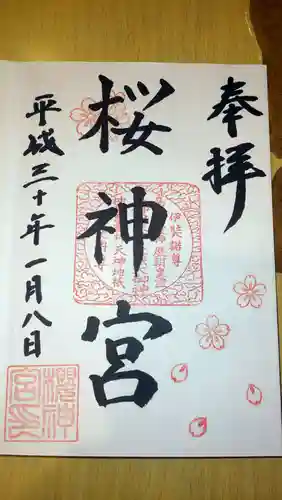 奉拝
桜神宮
平成三十年一月八日